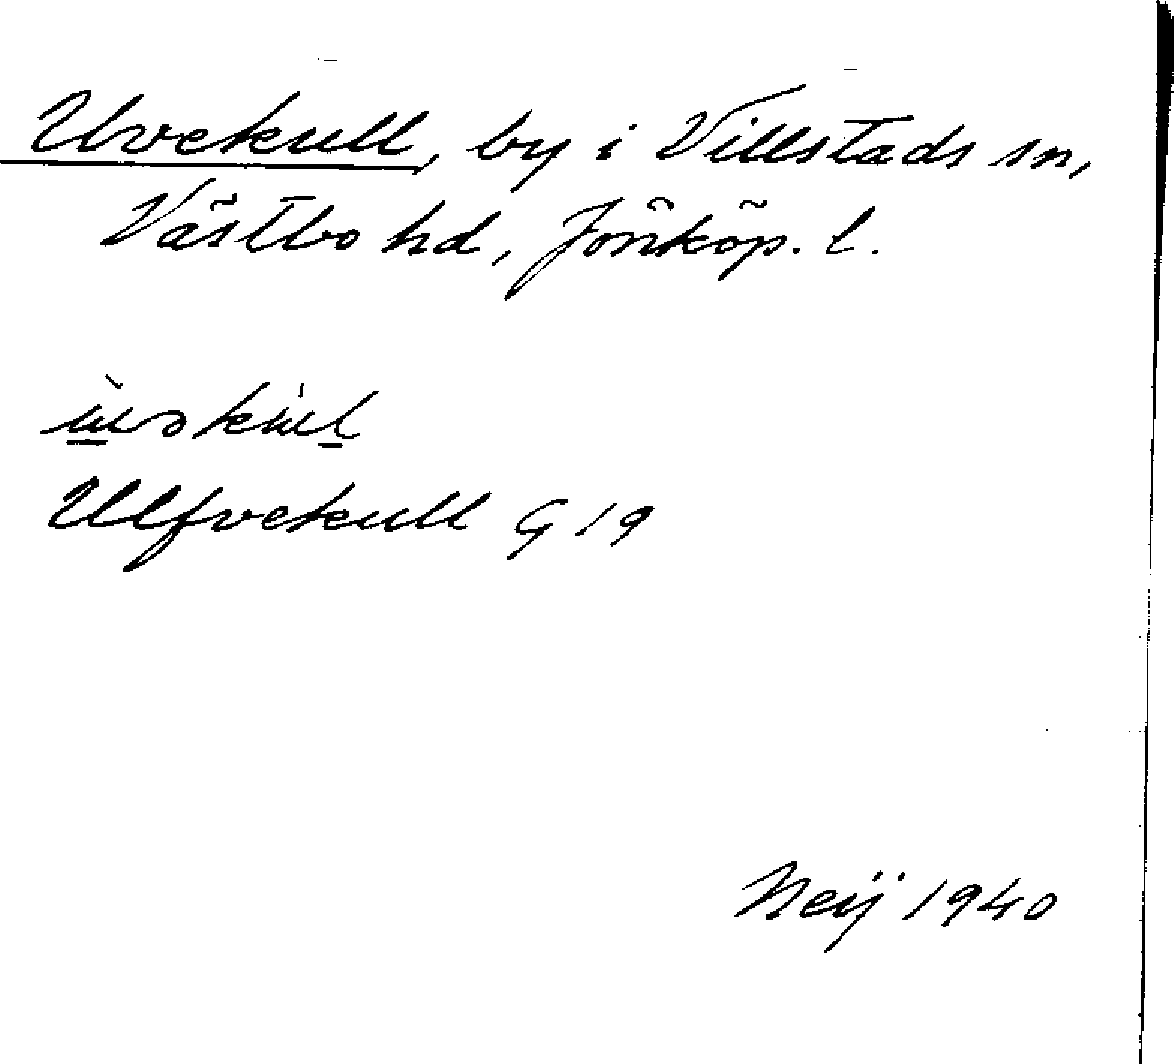 Uvekull, by i Villstads sn,
Västbo hd, Jönköp. l.
Ulfvekull G 19
Neij 1940